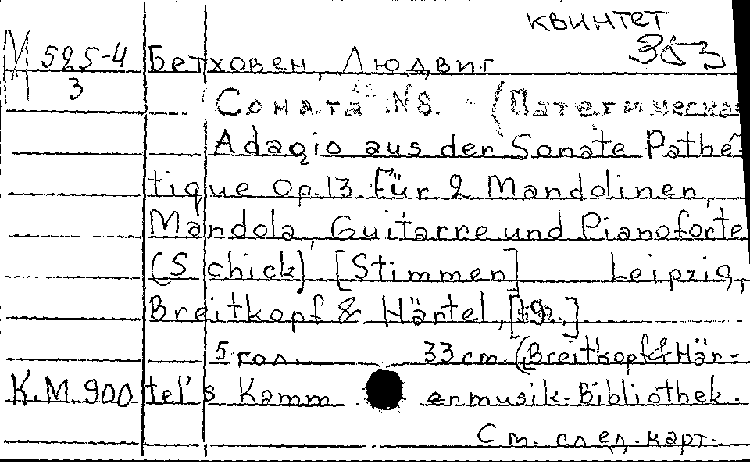 квинтет
М 525-4 Бетховен, Людвиг 353
3 Соната № 8. (Патетическая
Adagio aus der Sonate Pathé-
tique Op. 13. Für 2 Mandolinen,
Mandola, Guitarre und Pianoforte
(Schick) [Stimmen] Leipzig,
Breitkopf & Härtel,
5 гол. 33 cm. (Breitkopf & Här-
К.М. 900 tel's Kammermusik-Bibliothek.
См. след. карт.